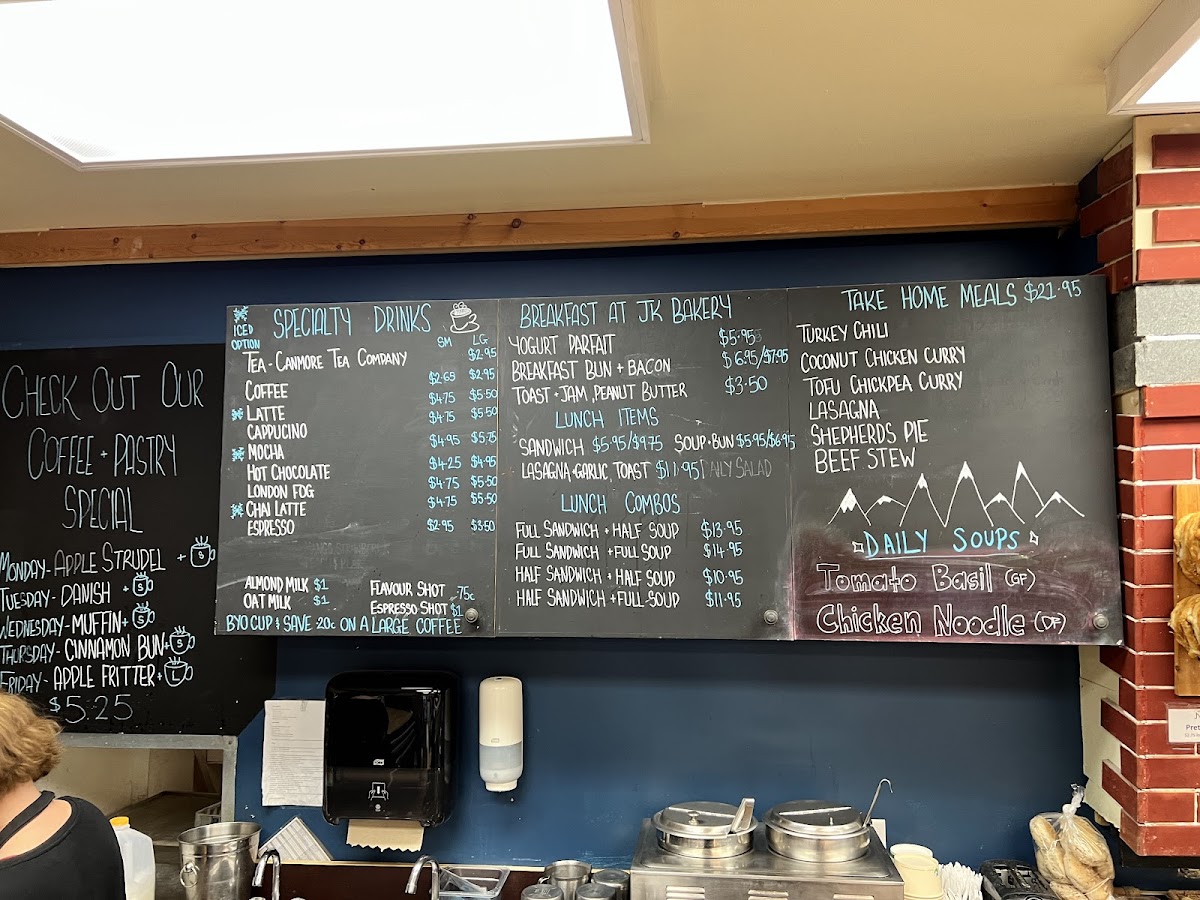 CHECK OUT OUR
COFFEE + PASTRY
SPECIAL
MONDAY - APPLE STRUDEL +
TUESDAY - DANISH + S
WEDNESDAY - MUFFIN + S
THURSDAY - CINNAMON BUN + S
FRIDAY - APPLE FRITTER + L
$5.25
ICED
OPTION
SPECIALTY DRINKS
SM LG
TEA - CANMORE TEA COMPANY $2.95
COFFEE $2.65 $2.95
LATTE $4.75 $5.50
CAPPUCINO $4.75 $5.50
MOCHA $4.95 $5.75
HOT CHOCOLATE $4.25 $4.95
LONDON FOG $4.75 $5.50
CHAI LATTE $4.75 $5.50
ESPRESSO $2.95 $3.50
ALMOND MILK $1
OAT MILK $1
FLAVOUR SHOT .75c
ESPRESSO SHOT $1
BYO CUP & SAVE 20c ON A LARGE COFFEE
BREAKFAST AT JK BAKERY
YOGURT PARFAIT $5.95
BREAKFAST BUN + BACON $6.95/$7.95
TOAST + JAM, PEANUT BUTTER $3.50
LUNCH ITEMS
SANDWICH $5.95/$9.75 SOUP + BUN $5.95/$6.95
LASAGNA + GARLIC TOAST $11.95 DAILY SALAD
LUNCH COMBOS
FULL SANDWICH + HALF SOUP $13.95
FULL SANDWICH + FULL SOUP $14.95
HALF SANDWICH + HALF SOUP $10.95
HALF SANDWICH + FULL SOUP $11.95
TAKE HOME MEALS $21.95
TURKEY CHILI
COCONUT CHICKEN CURRY
TOFU CHICKPEA CURRY
LASAGNA
SHEPHERDS PIE
BEEF STEW
DAILY SOUPS
Tomato Basil (GF)
Chicken Noodle (DF)